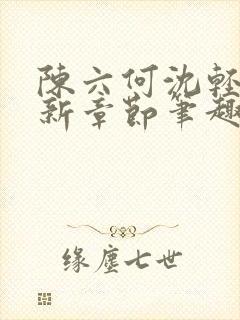 陳六何沈輕
新章節筆趣
缘塵七世